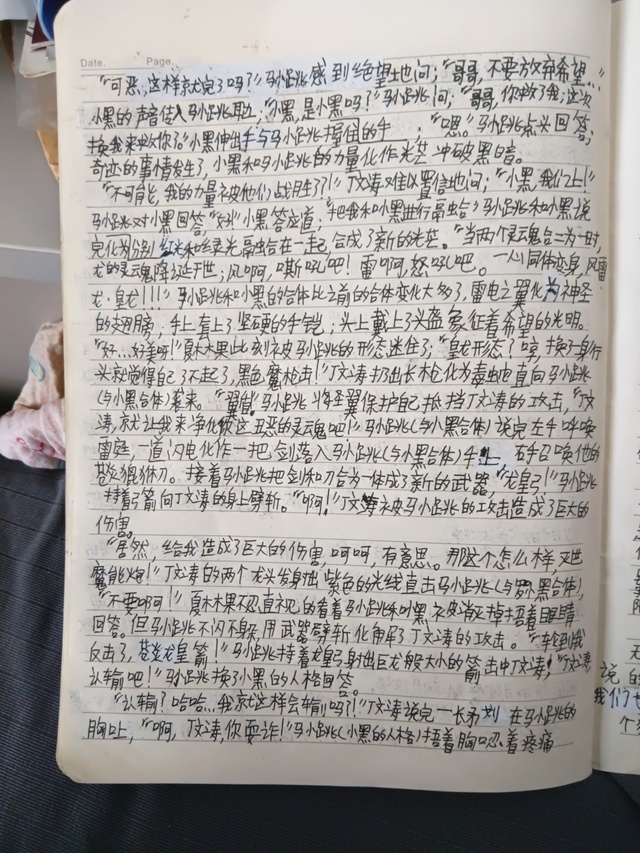 Date. Page.
"可恶,这样就完了吗?"马小跳感到绝望地问;"哥哥,不要放弃希望…"
小黑的声音传入马小跳耳边;"小黑,是小黑吗?"马小跳问;"哥哥,你救了我;这次
换我来救你了。"小黑伸出手与马小跳握住的手 ;"嗯。"马小跳点头回答;
奇迹的事情发生了,小黑和马小跳的力量化作光芒 冲破黑暗。
"不可能,我的力量被他们战胜了?"丁文涛难以置信地问;"小黑,我们上!"
马小跳对小黑回答;"好!"小黑答应道;"把我和小黑进行融合"马小跳和小黑说
完化为分别红光和绿光融合在一起,合成了新的光芒。"当两个灵魂合二为一时,
龙的灵魂降临于世;风啊,嘶吼吧!雷啊,怒吼吧。一心同体变身,风雷
龙·皇龙!!!"马小跳和小黑的合体比之前的合体变化大多了,雷电之翼化为神圣
的翅膀;手上套上了坚硬的手铠;头上戴上了头盔象征着希望的光明。
"好…好美呀!"夏林果此刻被马小跳的形态迷住了;"皇龙形态?哼,换了一身行
头就觉得自己了不起了,黑色魔枪击!"丁文涛扔出长枪化为毒蛇直向马小跳
(与小黑合体)袭来。"翼盾"马小跳将圣翼保护自己抵挡丁文涛的攻击,"丁文
涛,就让我来净化你这丑恶的灵魂吧!"马小跳(与小黑合体)说完左手呼唤
雷庭,一道闪电化作一把剑落入马小跳(与小黑合体)手上 右手召唤他的
苍狼獠牙刀。接着马小跳把剑和刀合为一体成了新的武器,"龙皇弓!"马小跳
持着弓箭向丁文涛的身上劈斩。"啊!"丁文涛被马小跳的攻击造成了巨大的
伤害。
"居然,给我造成了巨大的伤害,呵呵,有意思。那这个怎么样,双炮
魔能炮!"丁文涛的两个龙头发射出紫色的光线直击马小跳(与小黑合体),
"不要啊!"夏林果不忍直视的看着马小跳和小黑被消灭掉捂着眼睛
回答。但马小跳不闪不躲,用武器劈斩化解了丁文涛的攻击。"轮到我
反击了,苍龙皇箭!"马小跳持着龙皇弓射出巨龙般大小的箭击中丁文涛;"丁文涛,
认输吧!"马小跳换了小黑的人格回答。
"认输?哈哈…我就这样会输吗?!"丁文涛说完一长矛刺在马小跳的
胸上,"啊,丁文涛,你耍诈!"马小跳(小黑的人格)捂着胸忍着疼痛
说的
我们